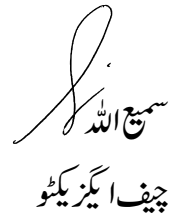 سمیع اللہ
چیف ایگزیکٹو